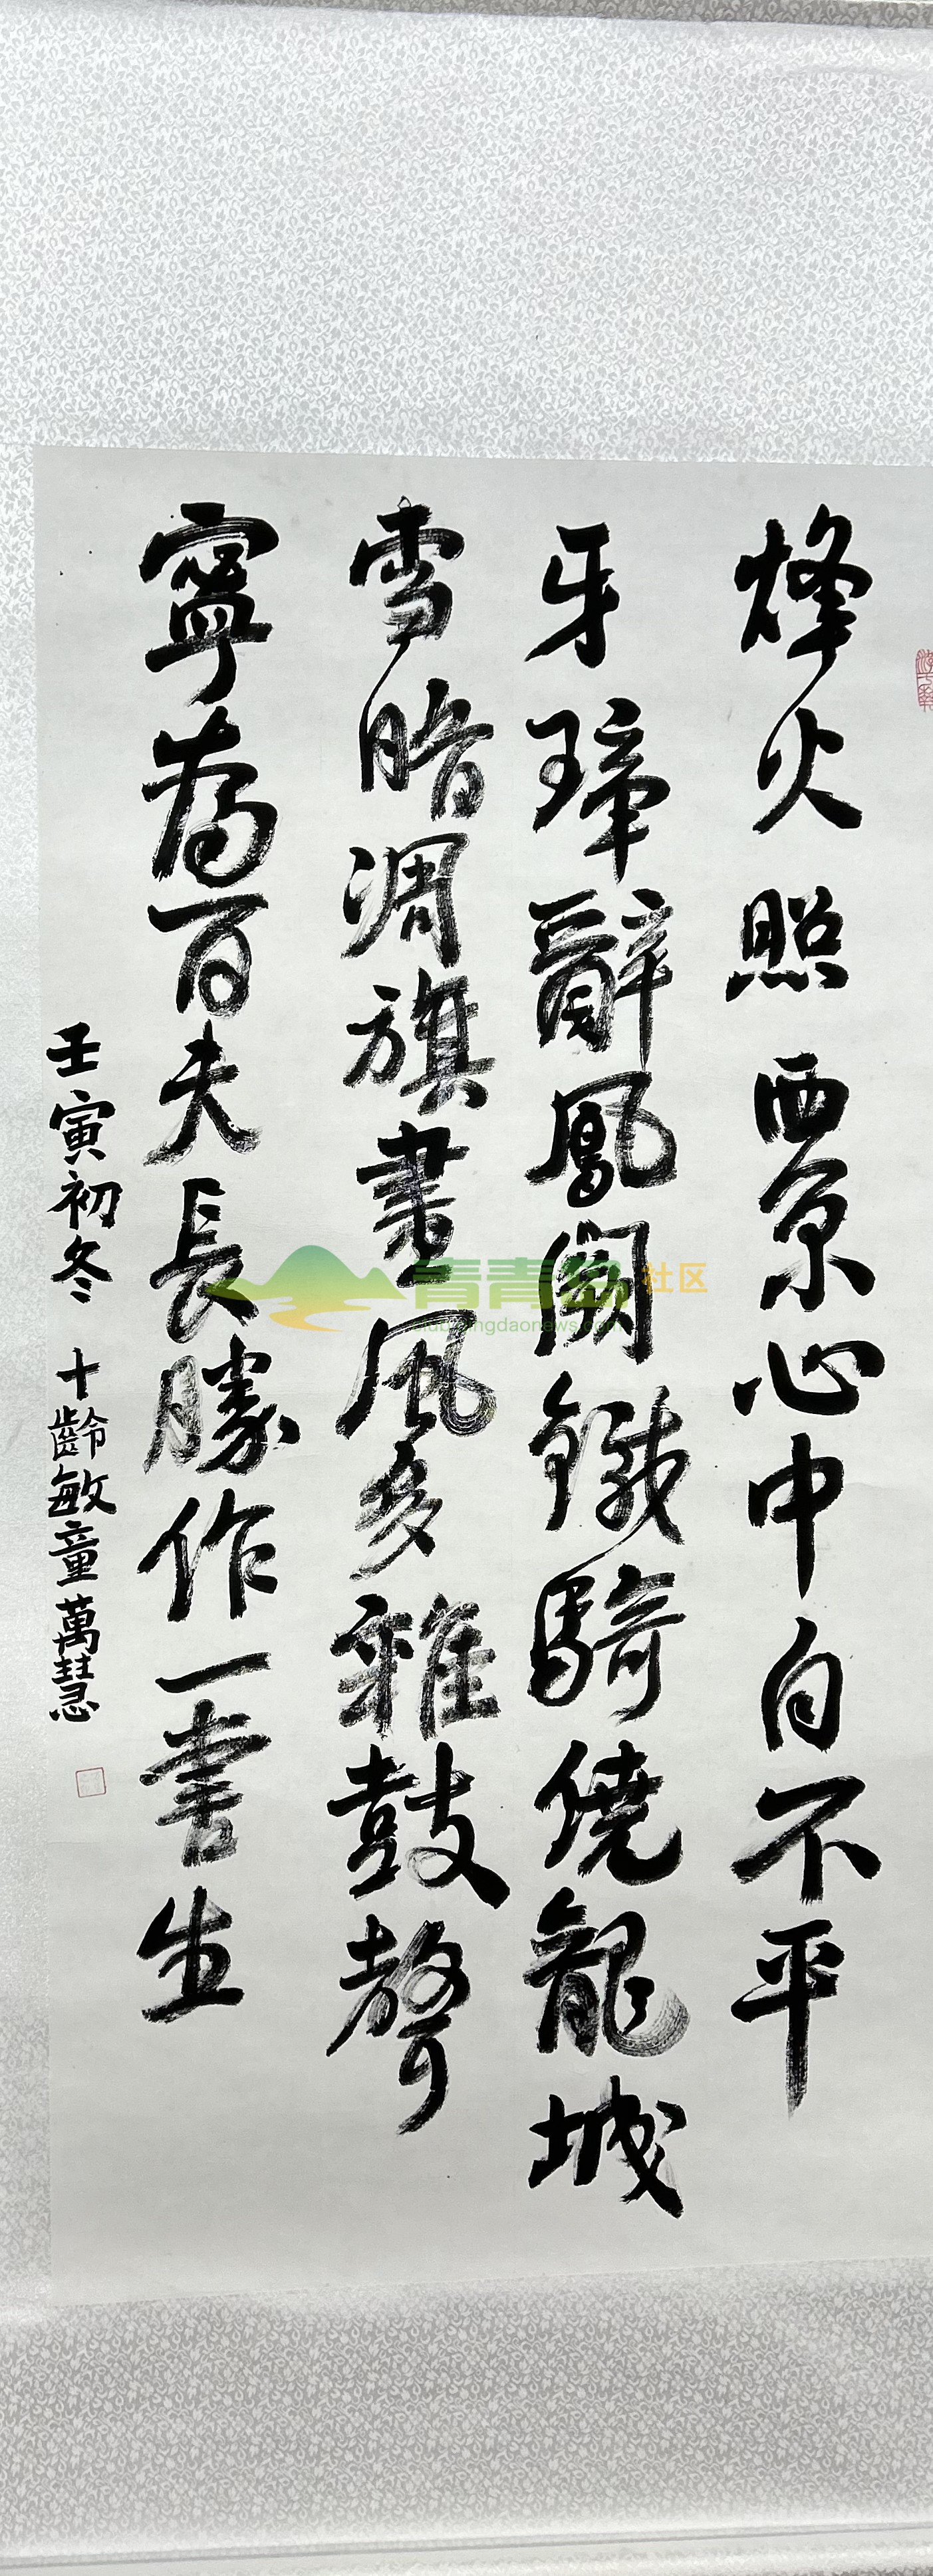 烽火照西京心中自不平
牙璋辭鳳闕鐵騎繞龍城
雪暗凋旗畫風多雜鼓聲
寧為百夫長勝作一書生
壬寅初冬 十齡敏童萬慧
青青岛社区
club.qingdaonews.com